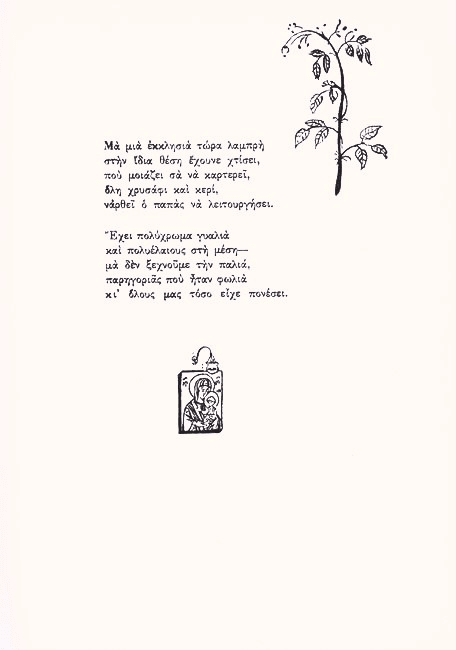 Μὰ μιὰ ἐκκλησιὰ τώρα λαμπρὴ
στὴν ἴδια θέση ἔχουνε χτίσει,
ποὺ μοιάζει σὰ νὰ καρτερεῖ,
ὅλη χρυσάφι καὶ κερί,
νἀρθεῖ ὁ παπὰς νὰ λειτουργήσει.
Ἔχει πολύχρωμα γυαλιὰ
καὶ πολυέλαιους στὴ μέση—
μὰ δὲν ξεχνοῦμε τὴν παλιά,
παρηγοριᾶς ποὺ ἦταν φωλιὰ
κι' ὅλους μας τόσο εἶχε πονέσει.